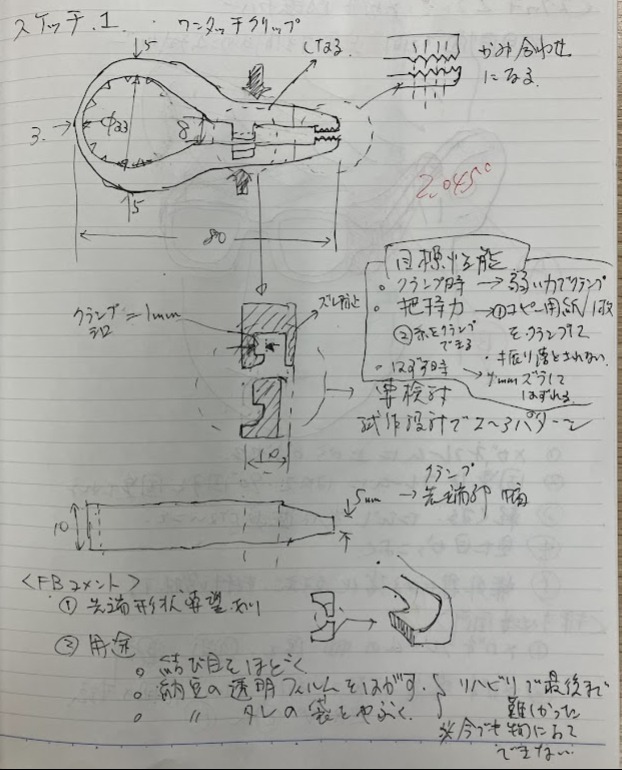 スケッチ.1. ワンタッチクリップ
かみ合わせ
になる
5
3.
φ33
8
5
80
2.045°
目標性能
・クランプ時 → 弱い力でクランプ
・把持力 → ①コピー用紙1枚
をクランプして
・振り落とされない
②糸をクランプ
できる
・はずす時 → 4mmズラして
はずれる
要検討
試作設計で2〜3パターン
クランプ
シロ = 1mm
ズレ防止
10
クランプ
5mm → 先端部 幅
10
<FBコメント>
① 先端形状要望あり
② 用途
・結び目をほどく
・納豆の透明フィルムをはがす.
・ 〃 タレの袋をやぶく.
リハビリで最後まで
難しかった
※今でも物によって
できない